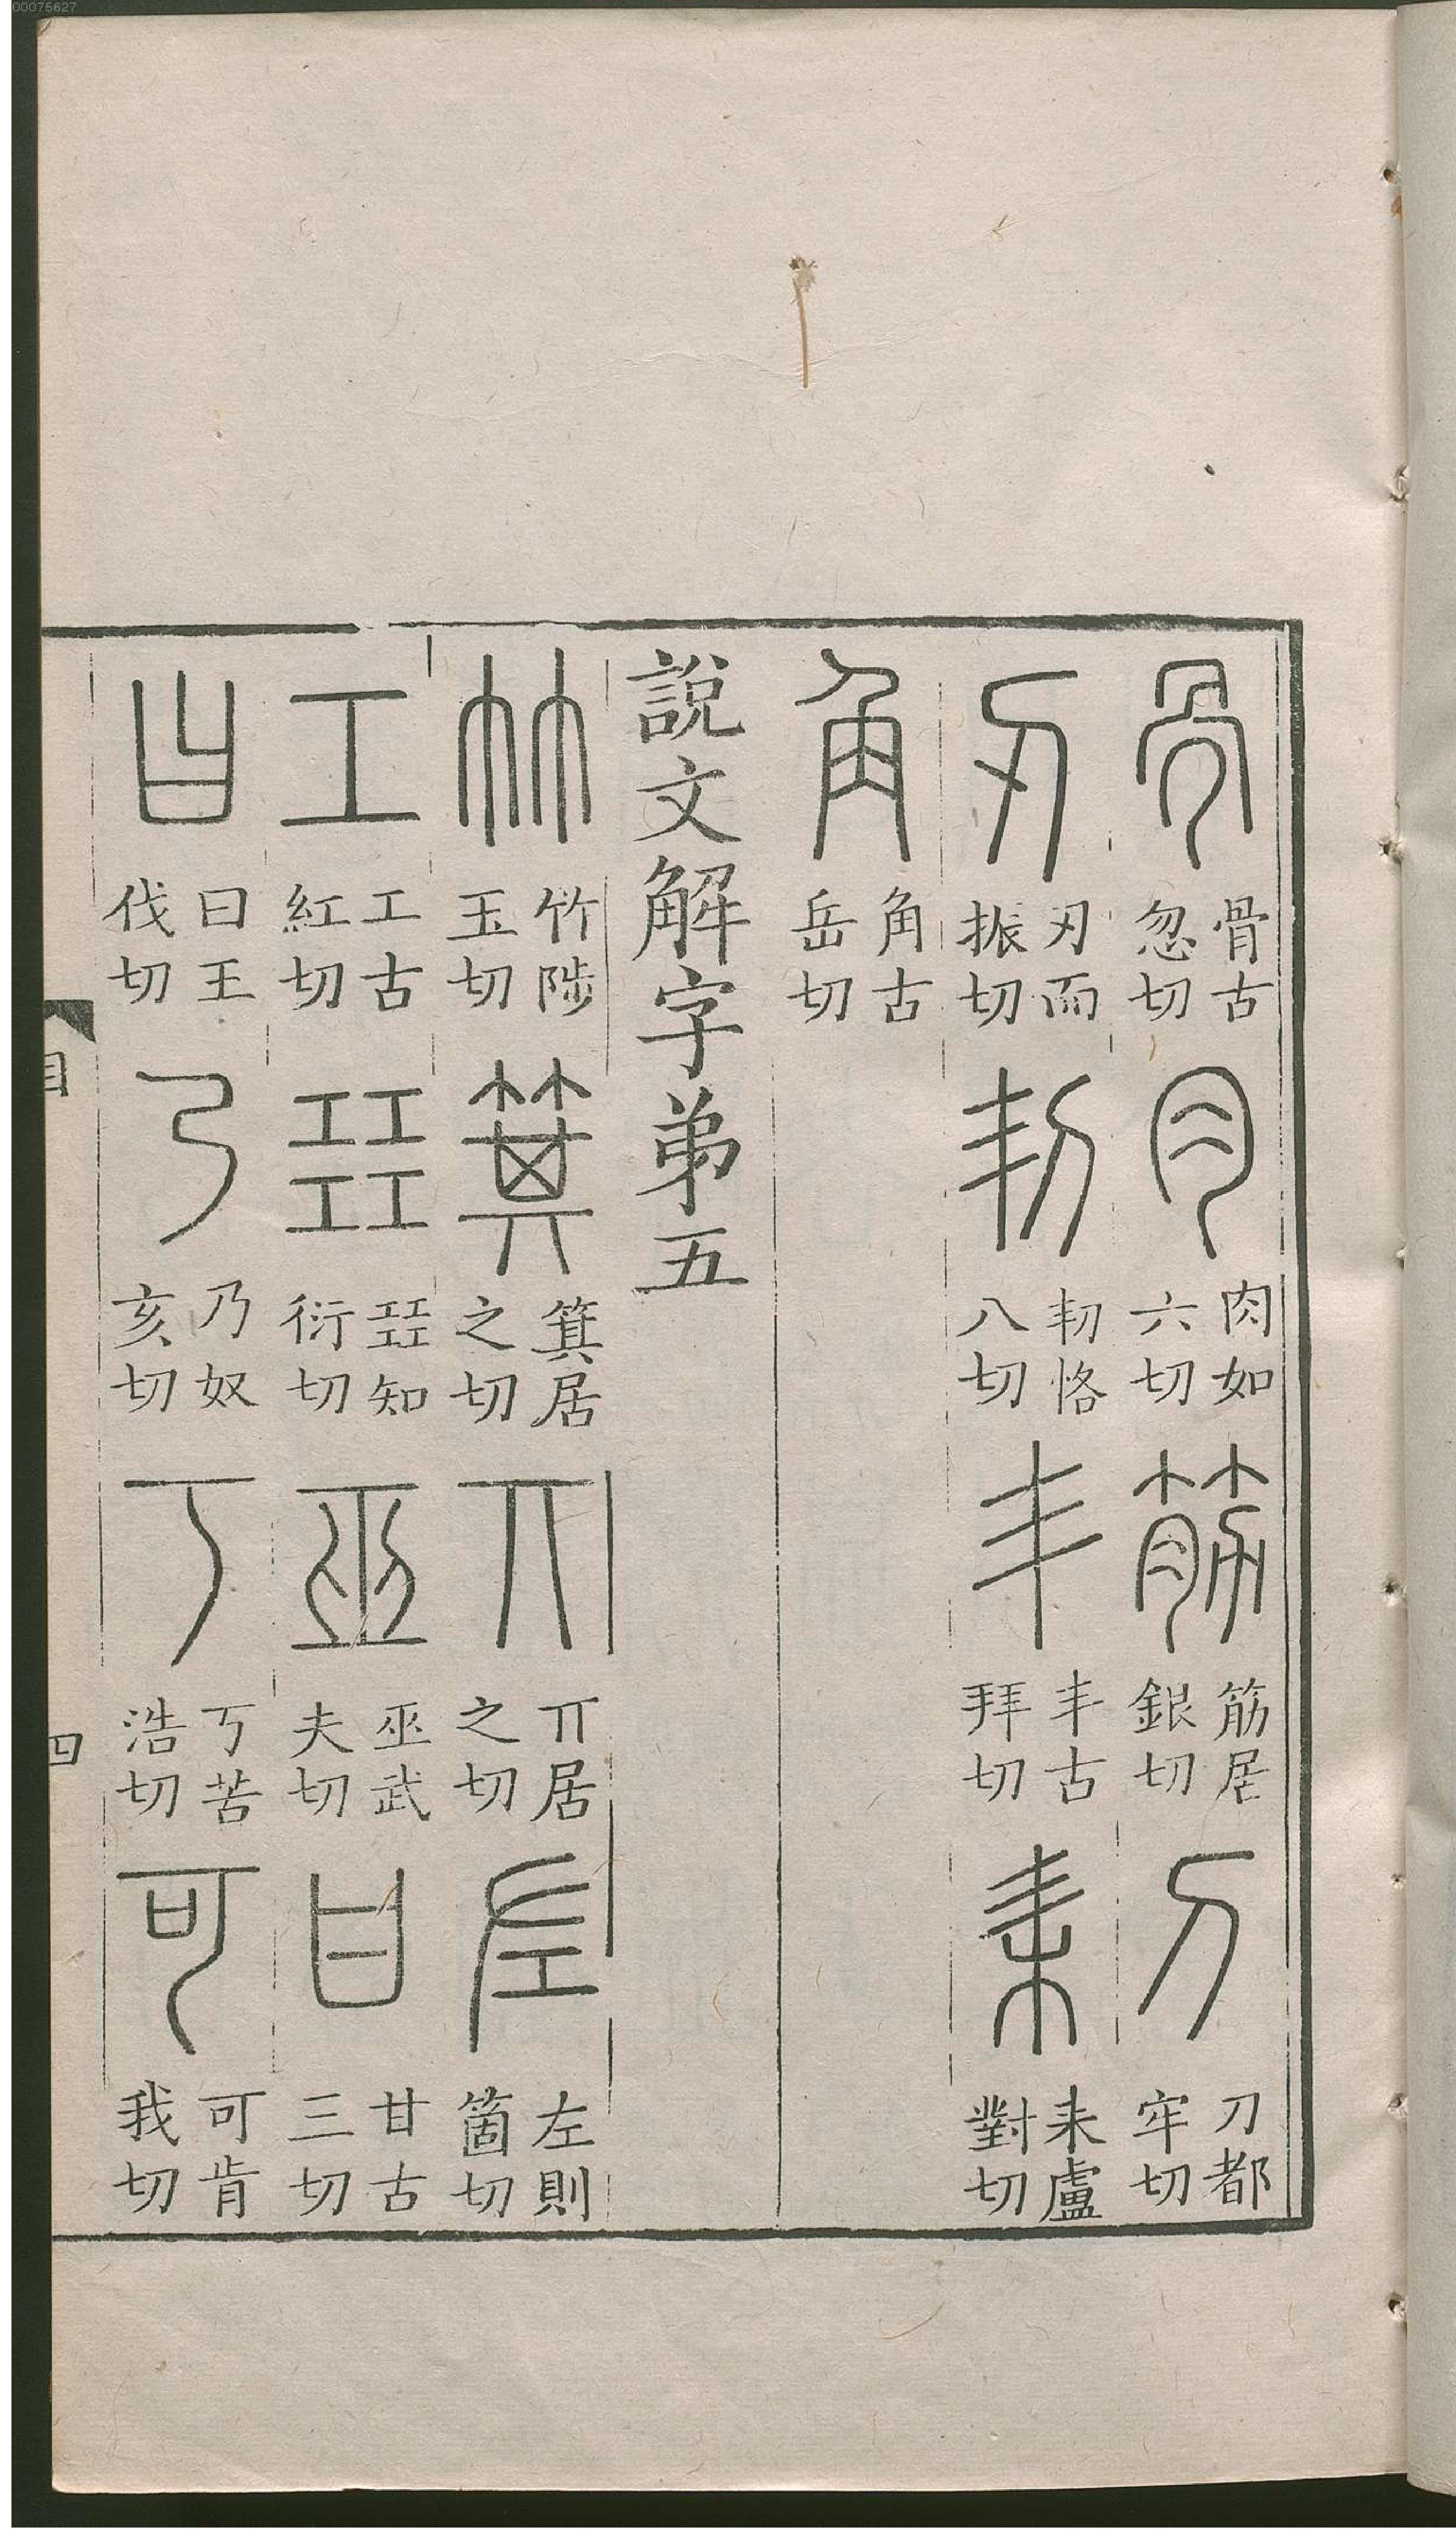 骨 骨古忽切 肉 肉如六切 筋 筋居銀切 刀 刀都牢切
刃 刃而振切 㓞 㓞恪八切 丯 丯古拜切 耒 耒盧對切
角 角古岳切
說文解字弟五
竹 竹陟玉切 箕 箕居之切 丌 丌居之切 左 左則箇切
工 工古紅切 㠭 㠭知衍切 巫 巫武夫切 甘 甘古三切
曰 曰王伐切 乃 乃奴亥切 丂 丂苦浩切 可 可肯我切
目 四
00075627